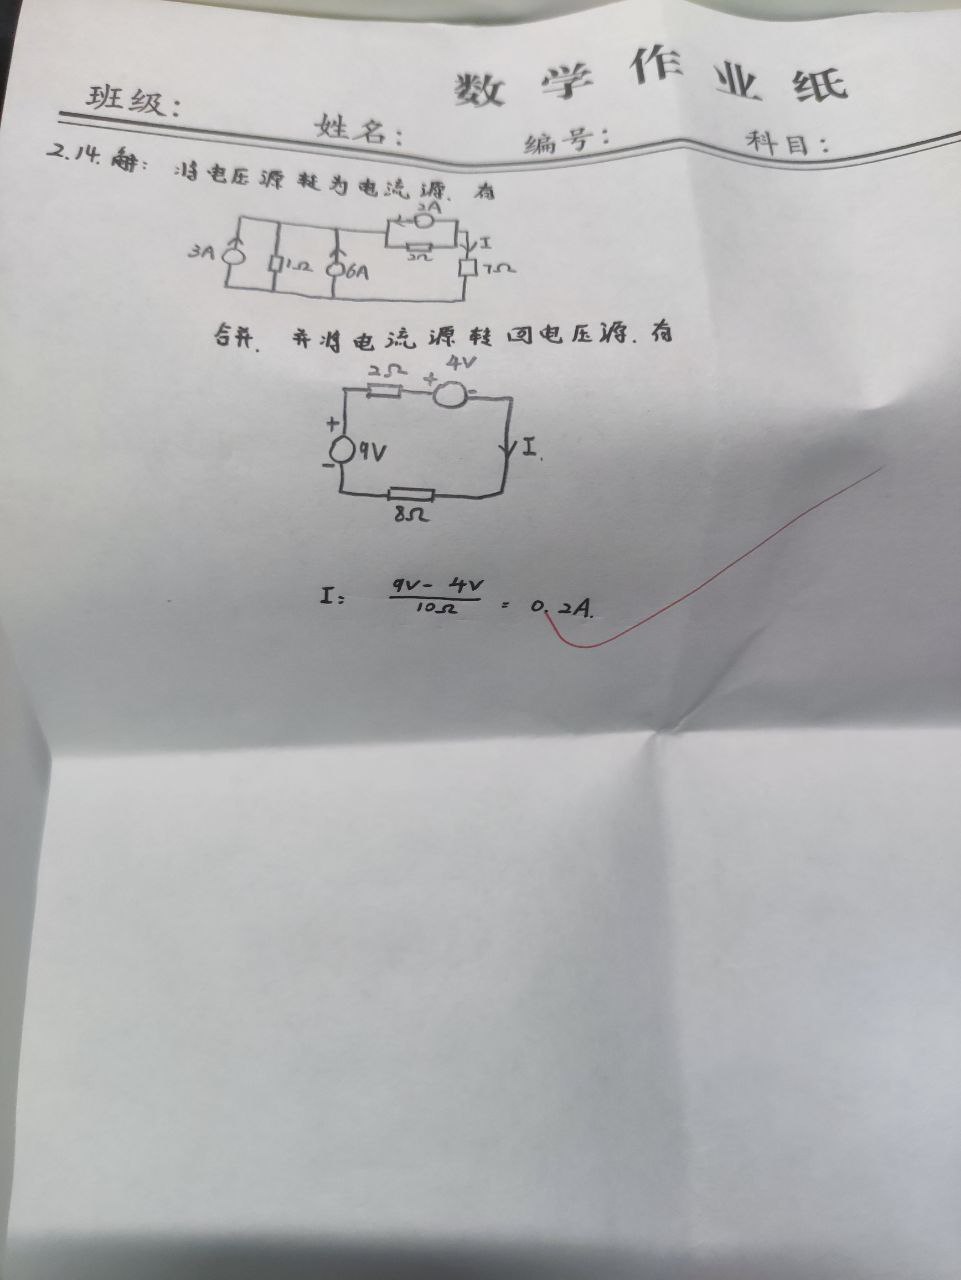 数学作业纸
班级:
姓名:
编号:
科目:
2.14. 解: 将电压源转为电流源. 有
2A
3A
1Ω
6A
2Ω
I
7Ω
合并. 并将电流源转回电压源. 有
2Ω
+ 4V -
+
9V
-
I.
8Ω
I: 9V- 4V / 10Ω = 0.2A.